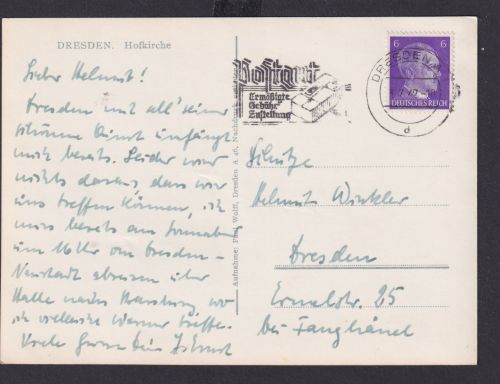 DRESDEN. Hofkirche
Lieber Helmut!
Dresden mit all' seiner
schönen Kunst empfängt
mich bereits. Leider war
nichts daraus, dass wir
uns treffen können, ich
muss bereits am Sonnabend
um 16 Uhr von Dresden-
Neustadt abreisen über
Halle nach Hamburg wo
ich vielleicht Werner treffe.
Viele Grüsse Dein
Aufnahme: Paul Wolff, Dresden A 46, Nachdruck
Postgut
Ermäßigte
Gebühr
Zustellung
DRESDEN
d
6 6
DEUTSCHES REICH
Schütze
Helmut Winkler
Dresden
25
bei Fanghänel